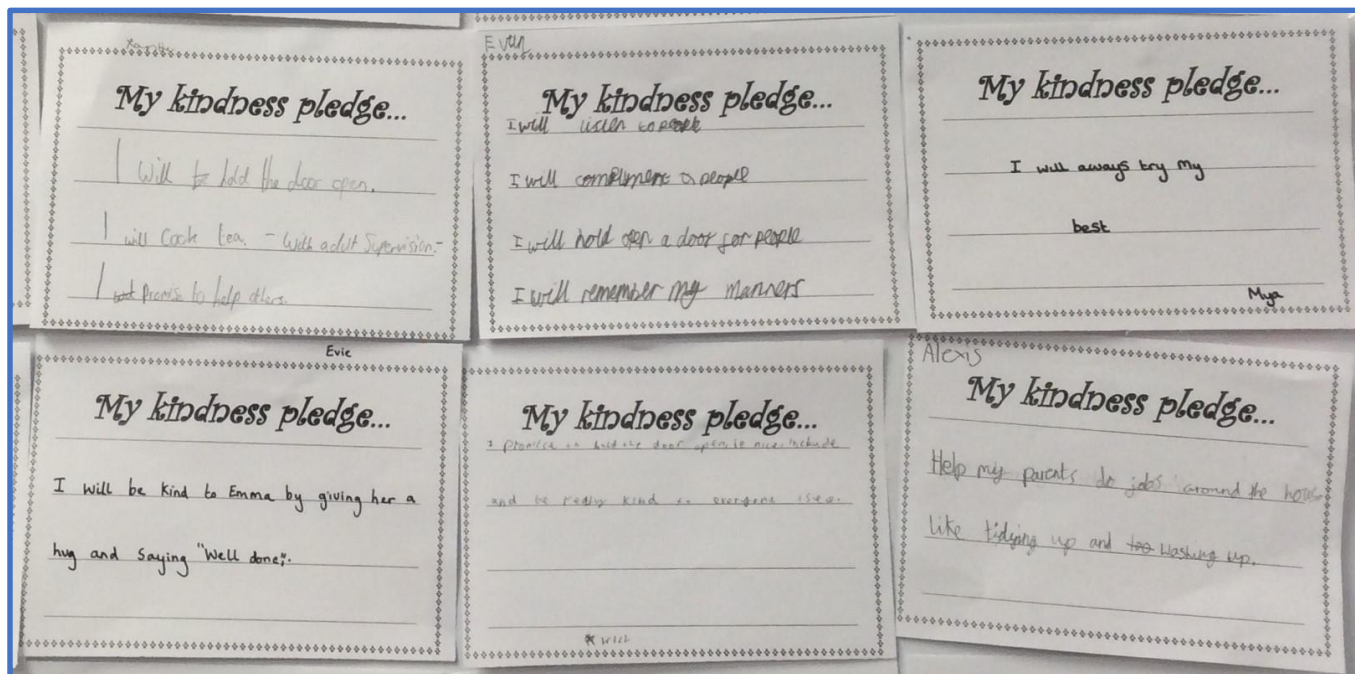 My kindness pledge...
I will hold the door open.
I will cook tea. - With adult Supervision.-
I Promise to help others.
Evan
My kindness pledge...
I will listen to people
I will compliment people
I will hold open a door for people
I will remember my manners
My kindness pledge...
I will aways try My
best
Mya
Evie
My kindness pledge...
I will be kind to Emma by giving her a
hug and saying "Well done".
My kindness pledge...
I promise to hold the door open, be nice, include
and be really kind to everyone I see.
Will
Alexis
My kindness pledge...
Help my parents do jobs around the house
like tidying up and washing up.